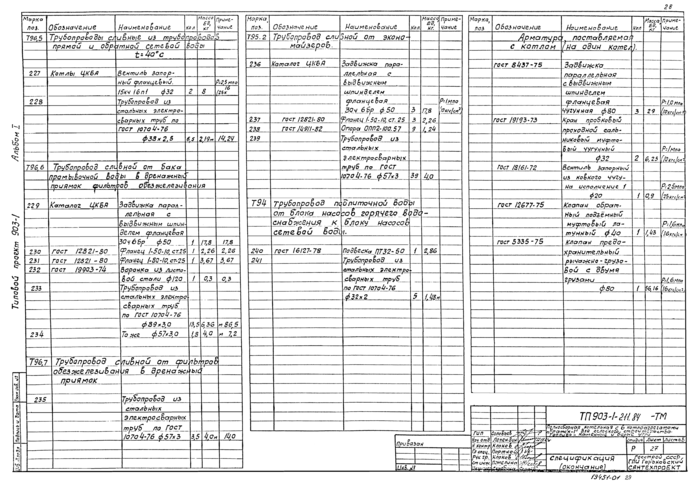 28
Марка поз. Обозначение Наименование Кол Масса ед, кг Приме- чание
Т96,5 Трубопроводы сливные из трубопроводов
прямой и обратной сетевой воды
t=40°С
227 Каталог ЦКБА Вентиль запор-
ный фланцевый
15кч 16п1 ф32 2 8
228 Трубопровод из
стальных электро-
сварных труб по
ГОСТ 10704-76
ф38×2,5 6,5 2,19м 14,24
Т96,6 Трубопровод сливной от бака
промывочной воды в дренажный
приямок фильтров обезжелезивания
229 Каталог ЦКБА Задвижка парал-
лельная с
выдвижным шпин-
делем фланцевая
30ч6бр ф50 1 17,8 17,8
230 ГОСТ 12821-80 Фланец 1-50-10, ст.25 1 2,26 2,26
231 ГОСТ 12821-80 Фланец 1-80-10, ст.25 1 3,67 3,67
232 ГОСТ 19903-74 Воронка из листо-
вой стали ф120 1 0,3 0,3
233 Трубопровод из
стальных электро-
сварных труб
по ГОСТ 10704-76
ф89×3,0 13,5 6,36 м 86,5
234 То же ф57×3,0 1,8 4,0 м 7,2
Т96,7 Трубопровод сливной от фильтров
обезжелезивания в дренажный
приямок
235 Трубопровод из
стальных
электросварных
труб по ГОСТ
10704-76 ф57×3 3,5 4,0м 14,0
Марка поз. Обозначение Наименование Кол Масса ед, кг Приме- чание
Т95.2 Трубопровод сливной от эконо-
майзеров.
236 Каталог ЦКБА Задвижка пара-
ллельная с
выдвижным
шпинделем
фланцевая Р-1мпа
30ч 6бр ф50 3 17,8 (10кгс/см²)
237 ГОСТ 12821-80 Фланец 1-50-10, ст.25 3 2,26
238 ГОСТ 14911-82 Опора ОПП2-100.57 9 1,24
239 Трубопровод из
стальных
электросварных
труб по ГОСТ
10704-76 ф57×3 39 4,0
Т94 Трубопровод подпиточной воды
от блока насосов горячего водо-
снабжения к блоку насосов
сетевой воды.
240 ГОСТ 16127-78 Подвески ПГ32-50 1 2,86
241 Трубопровод из
стальных электро-
сварных труб
по ГОСТ 10704-76
ф32×2 5 1,48м
Привязан
Инв. №
Марка поз. Обозначение Наименование Кол Масса ед, кг Приме- чание
Арматура, поставляемая
с котлом (на один котел).
ГОСТ 8437-75 Задвижка
параллельная
с выдвижным
шпинделем
фланцевая Р-1,0мпа
чугунная ф80 3 29
ГОСТ 19193-73 Кран пробковый
проходной саль-
никовый муфто-
вый чугунный Р-1мпа
ф32 2 6,23
ГОСТ 18161-72 Вентиль запорный
из ковкого чугу-
на исполнение 1
ф20 1 0,9
ГОСТ 12677-75 Клапан обрат-
ный подъемный
муфтовый ла-
тунный ф40 1 1,43
ГОСТ 5335-75 Клапан предо-
хранительный
рычажно-грузо-
вой с двумя
грузами
ф80 1 16,16
Типовой проект 903-1
Альбом I
ТП903-1-211.84 -ТМ
Стадия Лист Листов
Р 27
Спецификация
(окончание)
САНТЕХПРОЕКТ